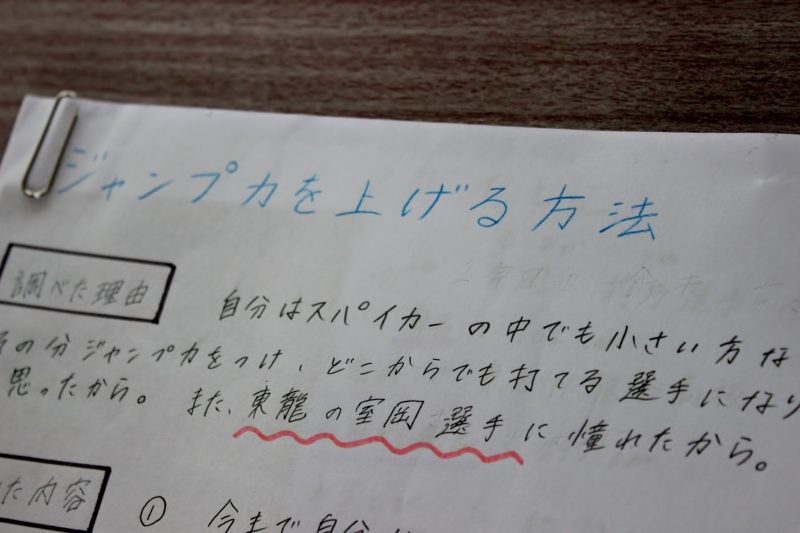 ジャンプ力を上げる方法
調べた理由
自分はスパイカーの中でも小さい方な
の分ジャンプ力をつけ、どこからでも打てる選手になり
思ったから。また、東龍の室岡選手に憧れたから。
た内容
① 今まで自分